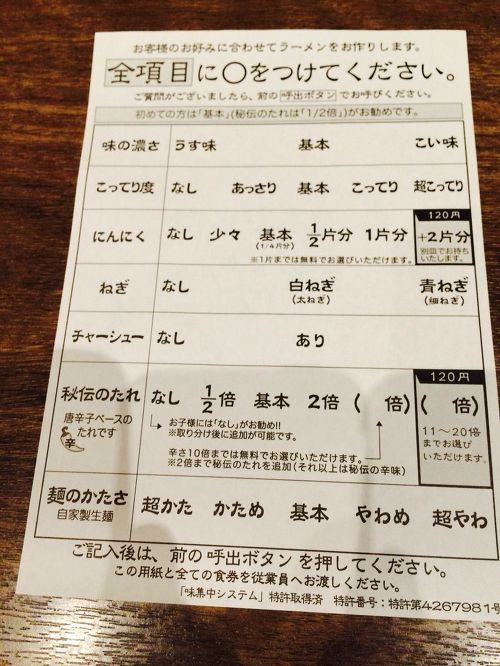 お客様のお好みに合わせてラーメンをお作りします。
全項目に○をつけてください。
ご質問がございましたら、前の 呼出ボタン でお呼びください。
初めての方は「基本」(秘伝のたれは「1/2倍」)がお勧めです。
味の濃さ うす味 基本 こい味
こってり度 なし あっさり 基本 こってり 超こってり
120円
にんにく なし 少々 基本 1/2片分 1片分 +2片分
(1/4片分)
別皿でお持ちいたします。
※1片までは無料でお選びいただけます。
ねぎ なし 白ねぎ 青ねぎ
(太ねぎ) (細ねぎ)
チャーシュー なし あり
120円
秘伝のたれ なし 1/2倍 基本 2倍 ( 倍) ( 倍)
唐辛子ベースの
たれです
辛
お子様には「なし」がお勧め!!
※取り分け後に追加が可能です。
11～20倍
までお選び
いただけます。
辛さ10倍までは無料でお選びいただけます。
※2倍まで秘伝のたれを追加(それ以上は秘伝の辛味)
麺のかたさ 超かた かため 基本 やわめ 超やわ
自家製生麺
ご記入後は、前の 呼出ボタン を押してください。
この用紙と全ての食券を従業員へお渡しください。
「味集中システム」特許取得済 特許番号：特許第4267981号